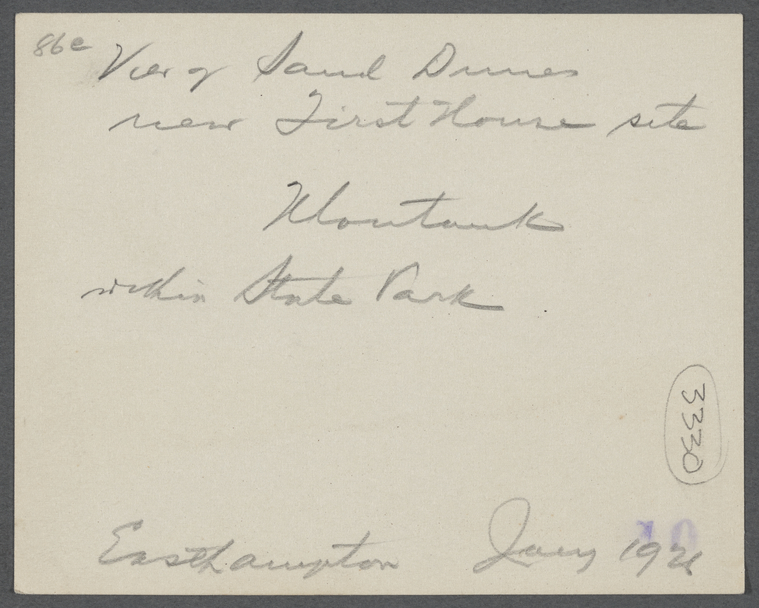 86e View of Sand Dunes
near First House site
Montauk
within State Park
3330
Easthampton Jany 192
10